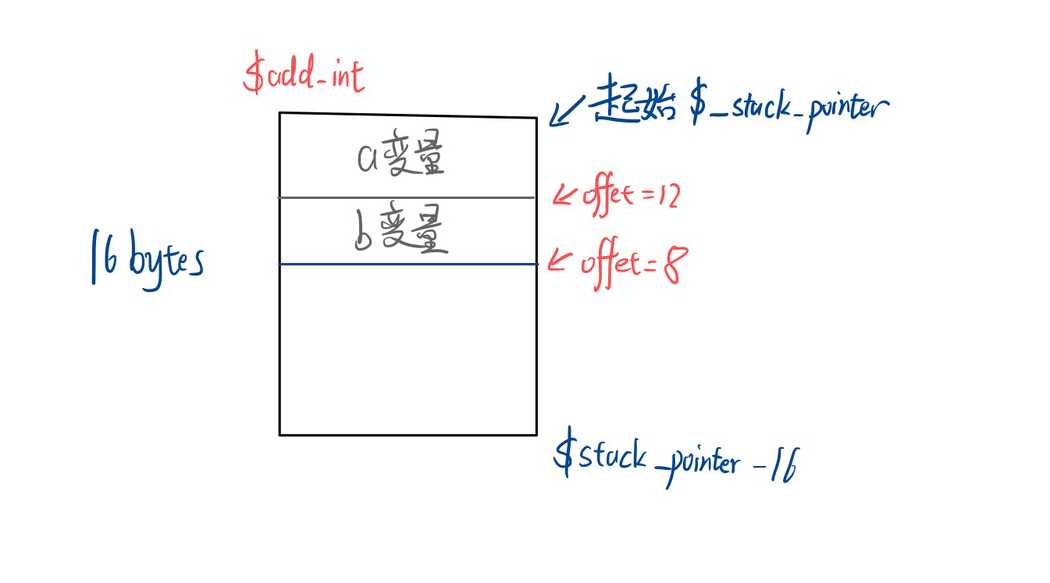 $add_int
起始 $_stack_pointer
a变量
offet=12
b变量
16 bytes
offet=8
$stack_pointer-16